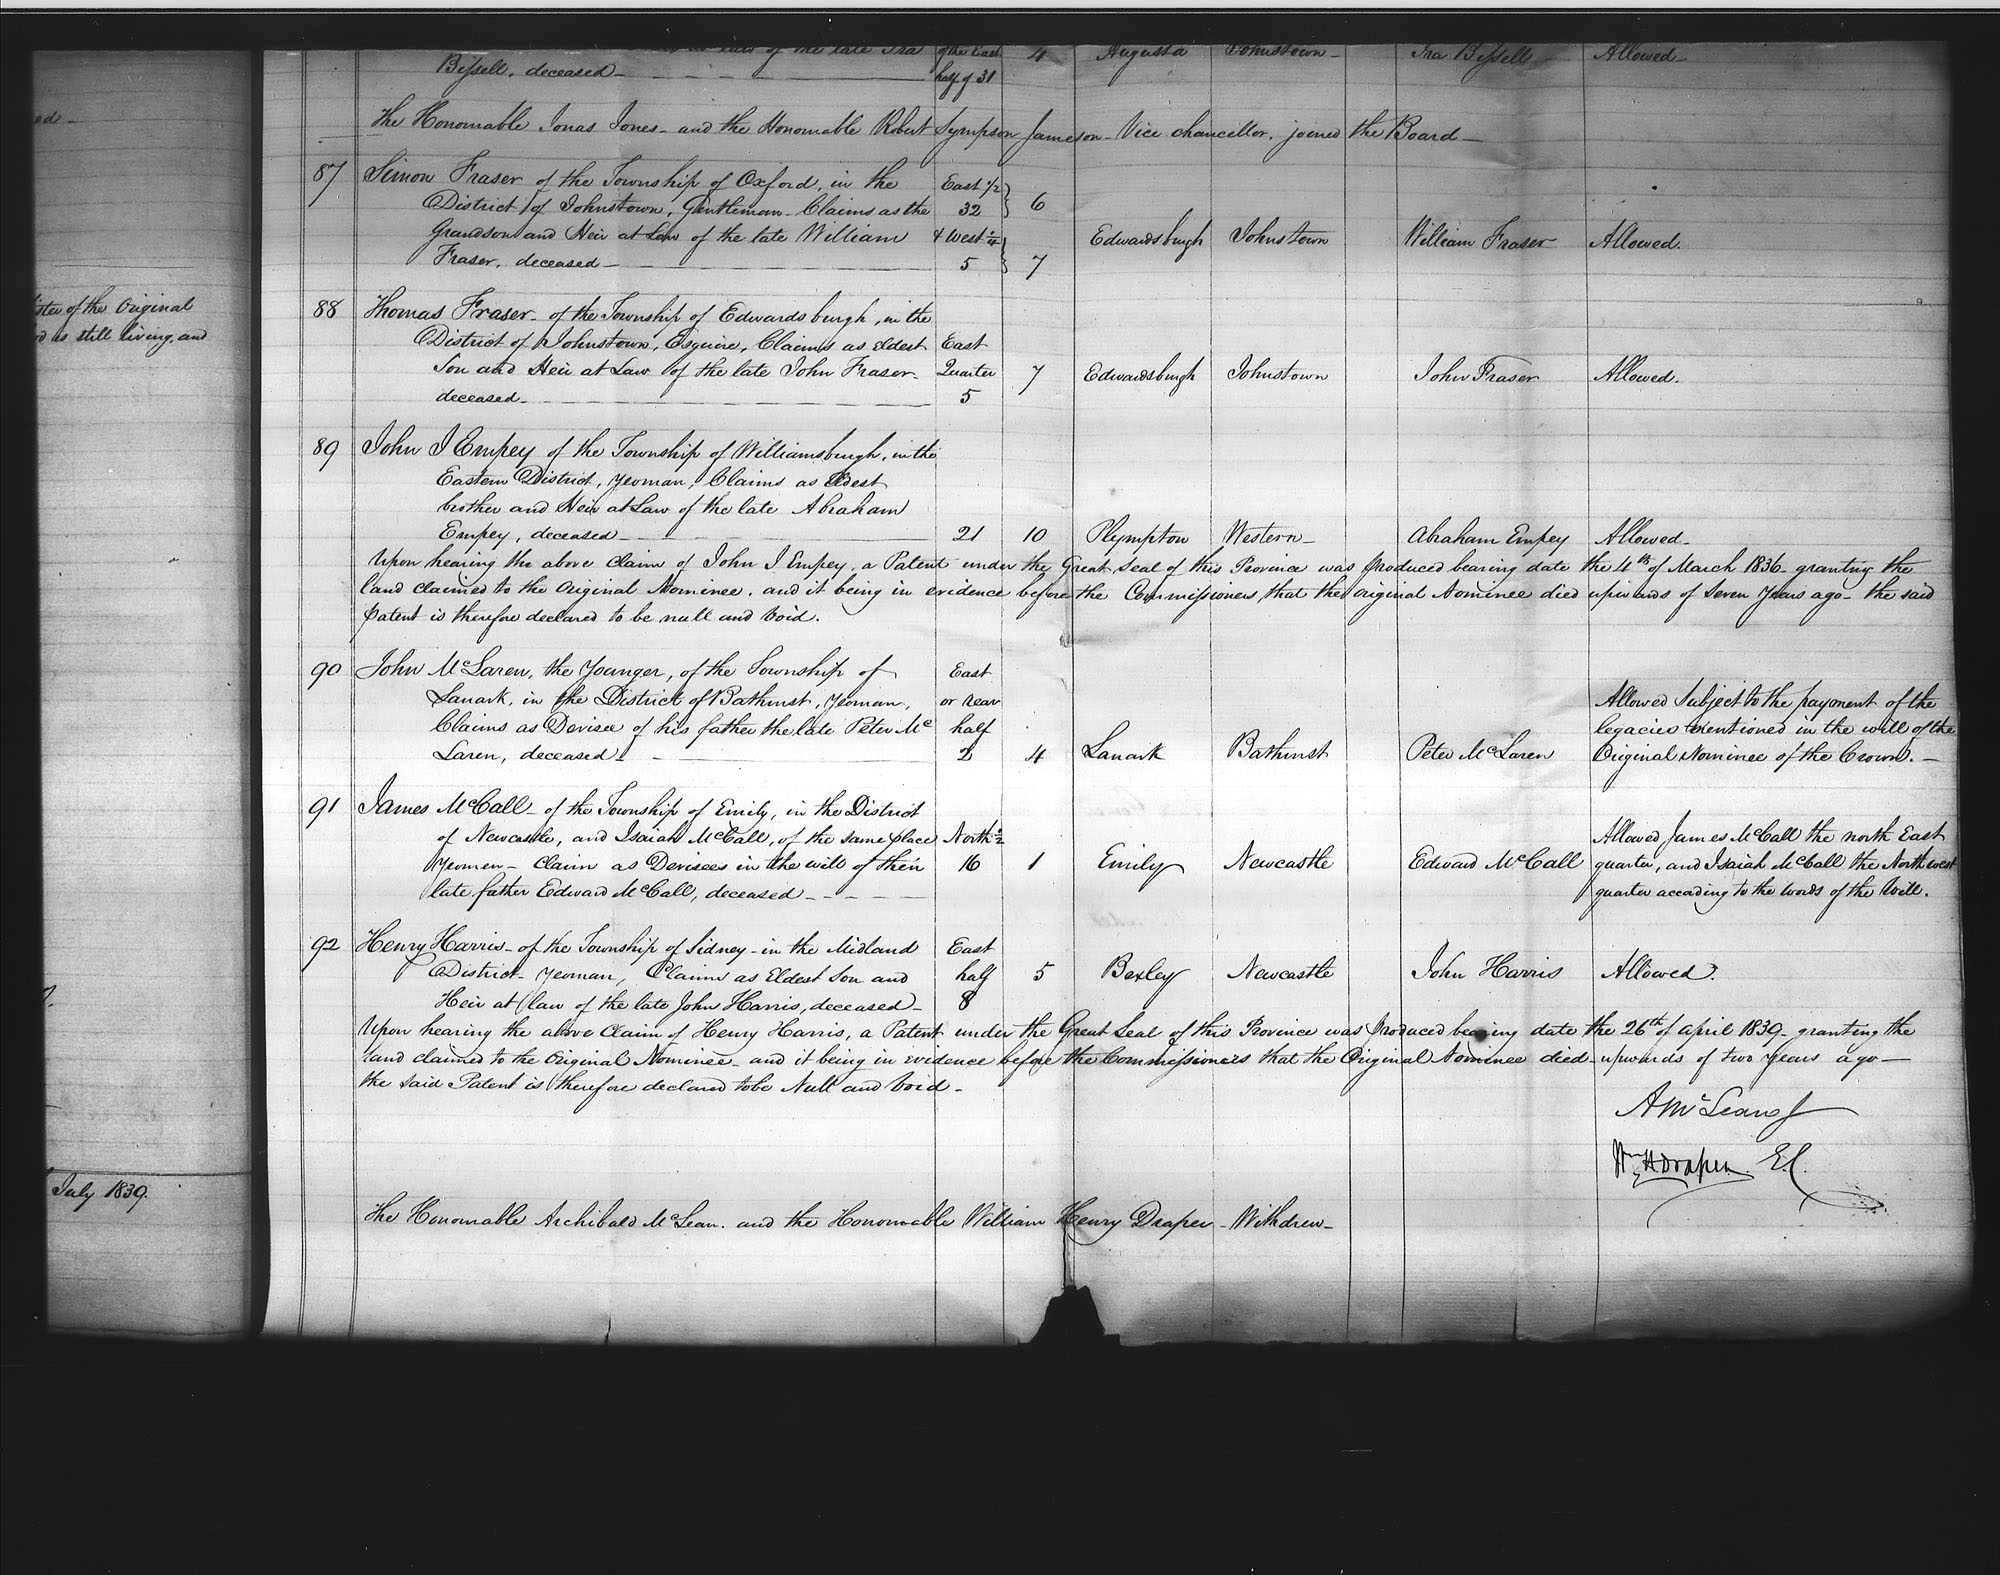 ed -
of the Original
is still living, and
July 1839.
law of the late Ira of the East 4 Augusta Johnstown - Ira Bissell Allowed -
Bissell, deceased - half of 31
The Honorable Jonas Jones - and the Honorable Robert Sympson Jameson - Vice chancellor, joined the Board -
87 Simon Fraser of the Township of Oxford, in the East 1/2
District of Johnstown, Gentleman - Claims as the 32 6
Grandson and Heir at Law of the late William & West 1/4 Edwardsburgh Johnstown William Fraser Allowed.
Fraser, deceased - 5 7
88 Thomas Fraser - of the Township of Edwardsburgh, in the
District of Johnstown, Esquire, Claims as eldest East
Son and Heir at Law of the late John Fraser - Quarter 7 Edwardsburgh Johnstown John Fraser Allowed.
deceased - 5
89 John I Empey of the Township of Williamsburgh, in the
Eastern District, yeoman, Claims as Eldest
brother and Heir at Law of the late Abraham
Empey, deceased - 21 10 Plympton Western - Abraham Empey Allowed -
Upon hearing the above claim of John I Empey, a Patent under the Great Seal of this Province was produced bearing date the 4th of March 1836 - granting the
land claimed to the Original Nominee, and it being in evidence before the Commissioners, that the original Nominee died upwards of Seven Years ago - the said
Patent is therefore declared to be null and void.
90 John McLaren, the Younger, of the Township of East
Lanark, in the District of Bathurst, Yeoman, or rear Allowed Subject to the payment of the
Claims as Devisee of his father the late Peter Mc half legacies mentioned in the will of the
Laren, deceased - 2 4 Lanark Bathurst Peter McLaren Original Nominee of the Crown. -
91 James McCall - of the Township of Emily, in the District
of Newcastle, and Isaiah McCall, of the same place North 1/2 Allowed James McCall the north East
Yeomen - Claim as Devisees in the will of their 16 1 Emily Newcastle Edward McCall quarter, and Isaiah McCall the North west
late father Edward McCall, deceased - quarter according to the words of the Will.
92 Henry Harris - of the Township of Sidney - in the Midland East
District - yeoman, Claims as Eldest Son and half 5 Bexley Newcastle John Harris Allowed.
Heir at law of the late John Harris, deceased - 8
Upon hearing the above Claim of Henry Harris, a Patent under the Great Seal of this Province was produced bearing date the 26th of April 1839 - granting the
land claimed to the Original Nominee - and it being in evidence before the Commissioners that the Original Nominee died - upwards of two Years ago -
the said Patent is therefore declared to be Null and Void -
A McLean J
Wm H Draper E.C.
The Honourable Archibald McLean. and the Honourable William Henry Draper - Withdrew -